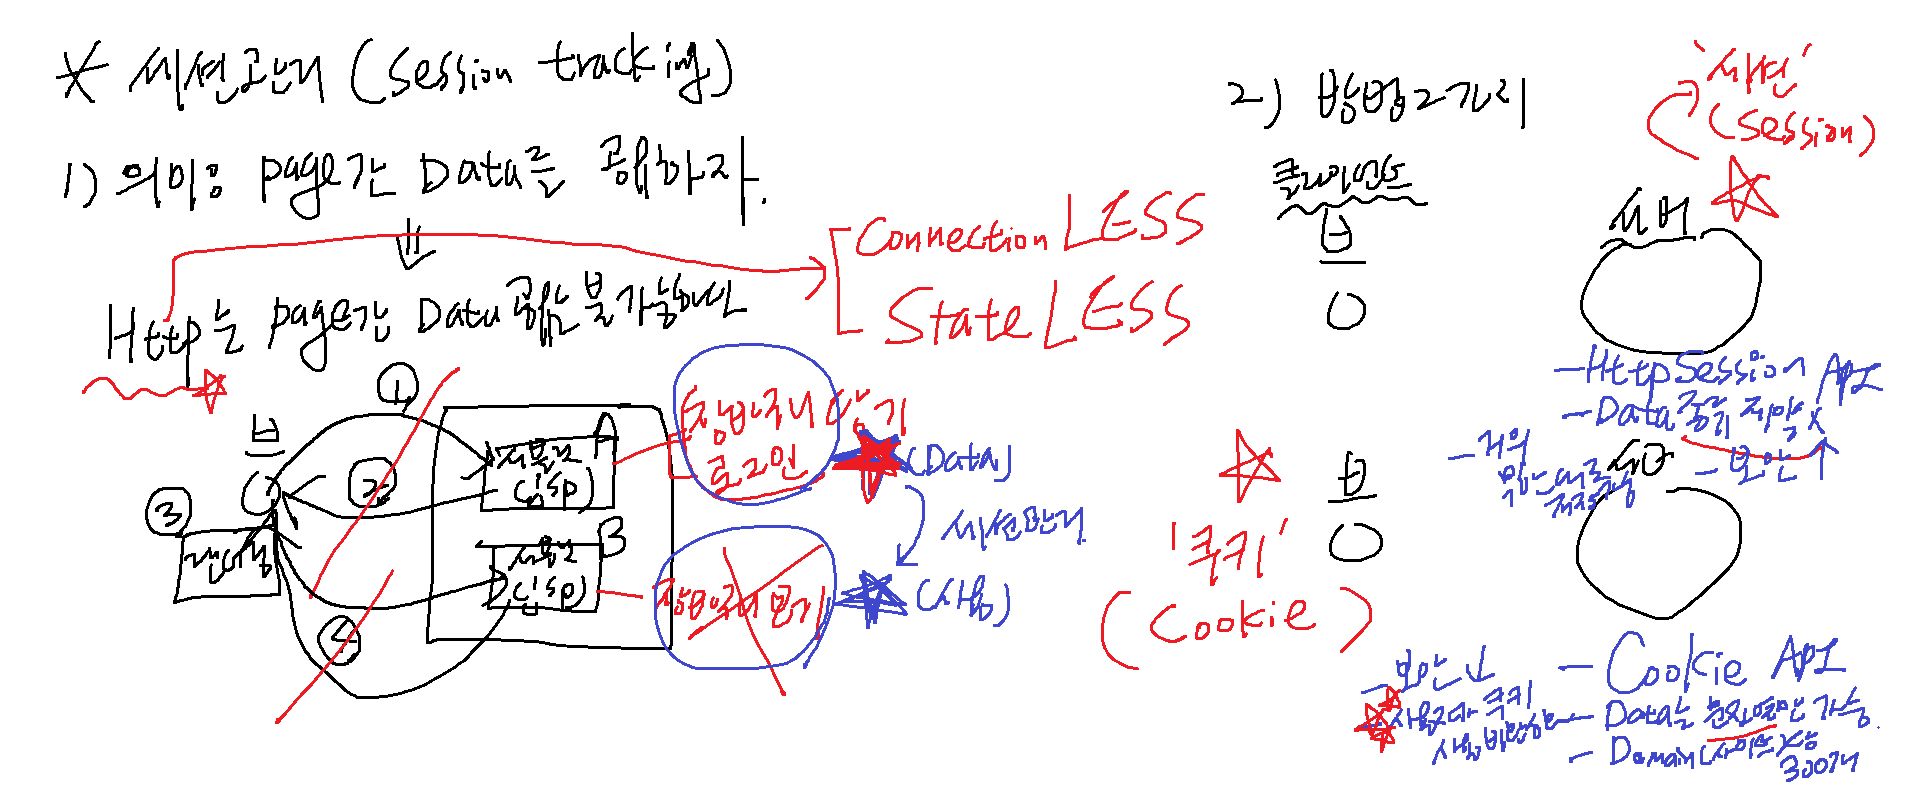 * 세션관리 (Session tracking)
1) 의미: page간 Data를 공유하자.
⇓
Http는 page간 Data 공유 불가능하다
Connection LESS
State LESS
①
②
③
④
브
렌더링
서블릿
(jsp)
A
서블릿
(jsp)
B
장바구니 담기
로그인
(Data)
세션관리
장바구니 보기
(사용)
2) 방법2가지
클라이언트
브
서버
'세션'
(Session)
- HttpSession API
- Data 종류 제약 X
- 거의
저장가능
- 보안↑
'쿠키'
(Cookie)
브
서버
- 보안↓
- Cookie API
- Data는 문자열만 가능.
- Domain(사이트)당
300개